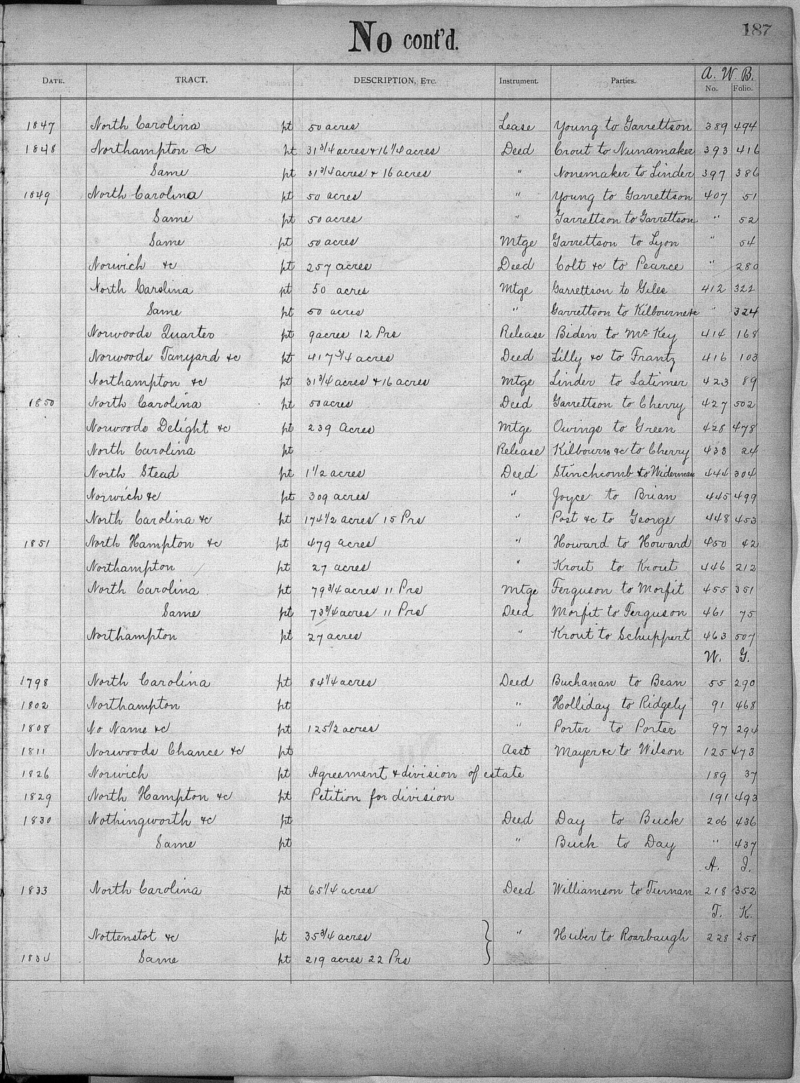 187
No cont'd.
A. W. B.
DATE. TRACT. DESCRIPTION, ETC. Instrument. Parties. No. Folio.
1847 North Carolina pt 50 acres Lease Young to Garrettson 389 494
1848 Northampton &c pt 31 3/4 acres & 16 1/4 acres Deed Crout to Nunamaker 393 416
Same pt 31 3/4 acres & 16 acres " Nonemaker to Linder 397 386
1849 North Carolina pt 50 acres " Young to Garrettson 407 51
Same pt 50 acres " Garrettson to Garrettson " 52
Same pt 50 acres Mtge Garrettson to Lyon " 54
Norwich &c pt 257 acres Deed Colt &c to Pearce " 280
North Carolina pt 50 acres Mtge Garrettson to Giles 412 322
Same pt 50 acres " Garrettson to Kilbourne &c " 324
Norwoods Quarter pt 9 acres 12 Prs Release Biden to McKey 414 168
Norwoods Tanyard &c pt 417 3/4 acres Deed Lilly &c to Frantz 416 103
Northampton &c pt 31 3/4 acres & 16 acres Mtge Linder to Latimer 423 89
1850 North Carolina pt 50 acres Deed Garrettson to Cherry 427 502
Norwoods Delight &c pt 239 Acres Mtge Owings to Green 428 478
North Carolina pt Release Kilbourn &c to Cherry 433 24
North Stead pt 1 1/2 acres Deed Stinchcomb to Widerman 444 304
Norwich &c pt 309 acres " Joyce to Brian 445 499
North Carolina &c pt 174 1/2 acres 15 Prs " Post &c to George 448 453
1851 North Hampton &c pt 479 acres " Howard to Howard 450 42
Northampton pt 27 acres " Krout to Krout 446 212
North Carolina pt 79 3/4 acres 11 Prs Mtge Ferguson to Morfit 455 351
Same pt 73 3/4 acres 11 Prs Deed Morfit to Ferguson 461 75
Northampton pt 27 acres " Krout to Schuppert 463 507
W. G.
1798 North Carolina pt 84 1/4 acres Deed Buchanan to Bean 55 290
1802 Northampton pt " Holliday to Ridgely 91 468
1808 No Name &c pt 125 1/2 acres " Porter to Porter 97 294
1811 Norwoods Chance &c pt Asst Mayer &c to Wilson 125 473
1826 Norwich pt Agreement & division of estate 189 37
1829 North Hampton &c pt Petition for division 191 493
1830 Nothingworth &c pt Deed Day to Buck 206 436
Same pt " Buck to Day " 437
A. J.
1833 North Carolina pt 65 1/4 acres Deed Williamson to Tiernan 218 352
T. K.
Nottenstot &c pt 35 3/4 acres " Huber to Roarbaugh 228 258
1834 Same pt 219 acres 22 Prs